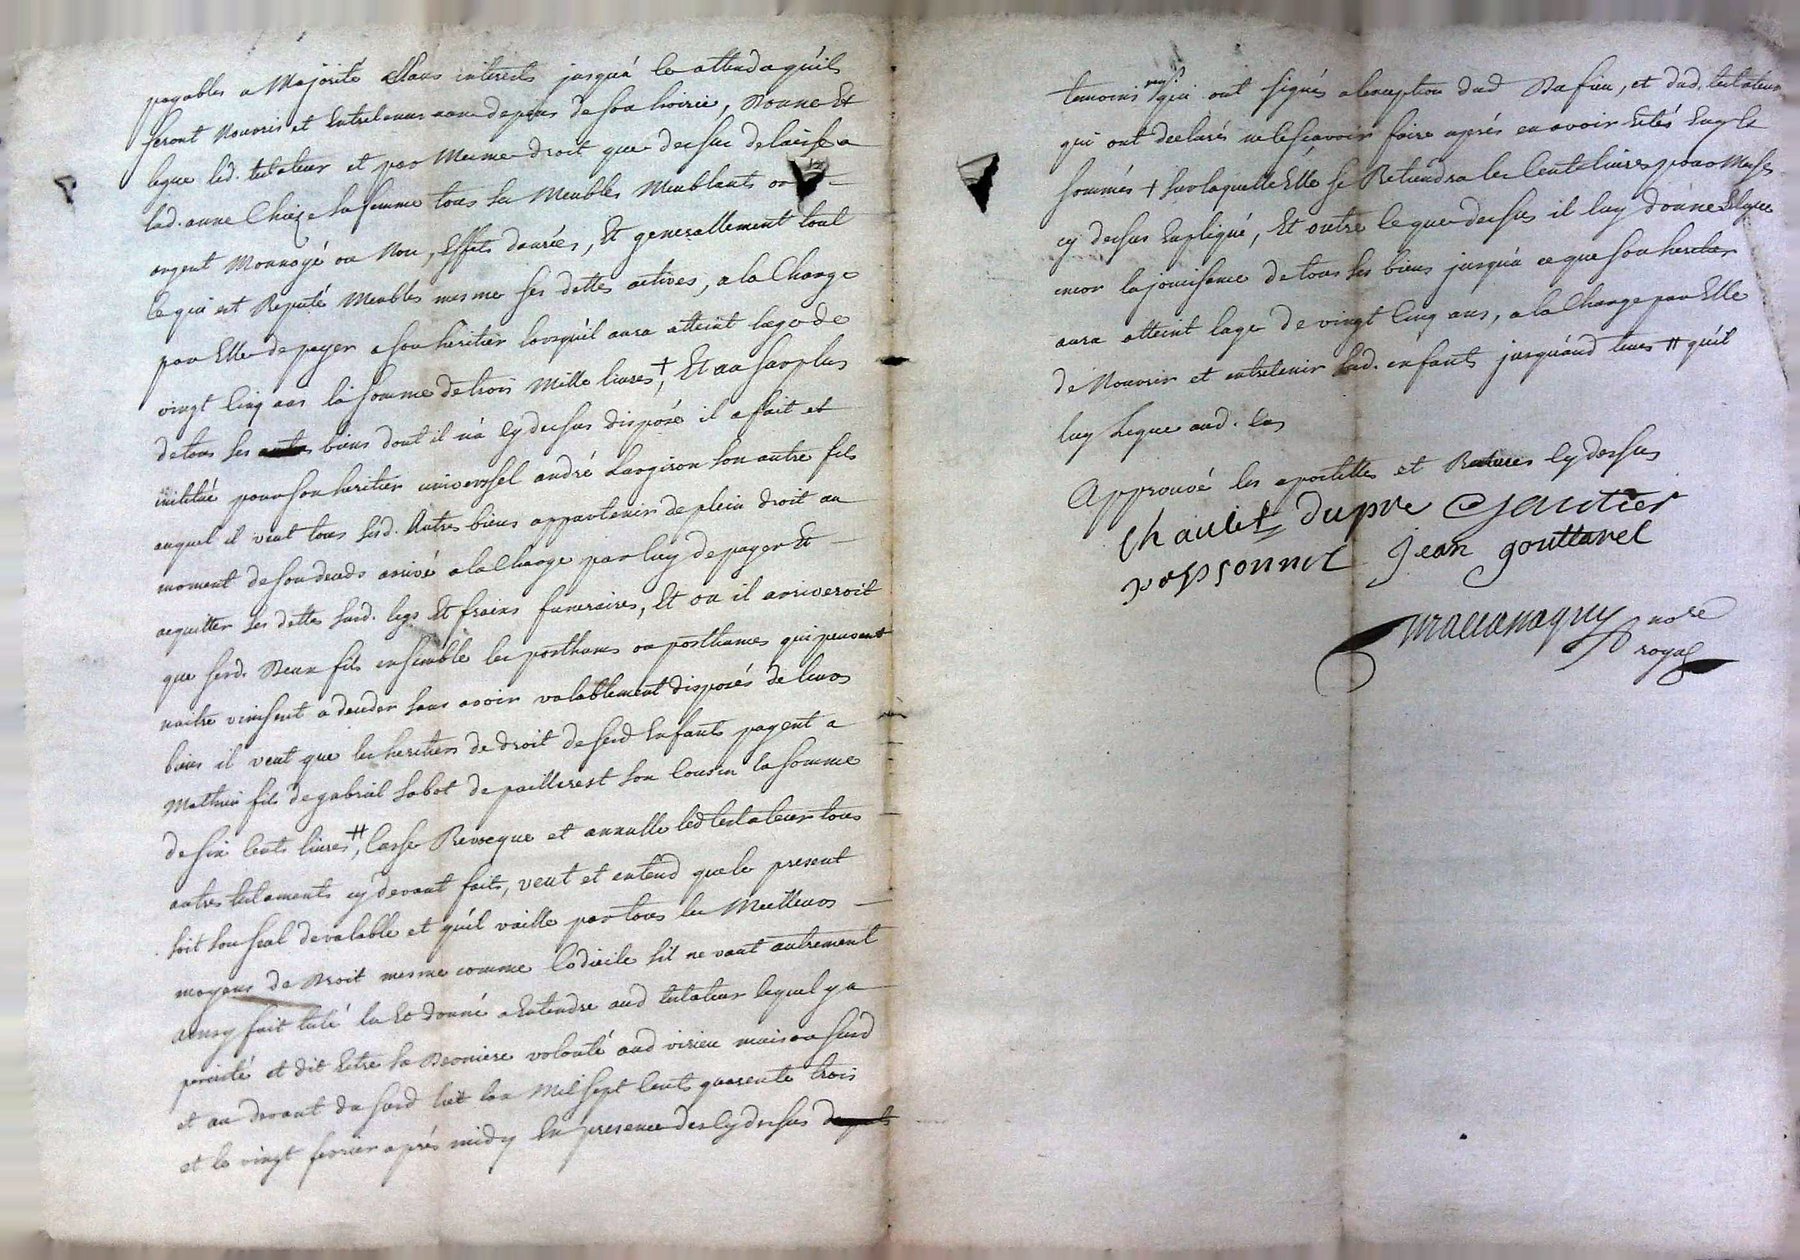 payables a Majorité Sans interests jusqu'a ce attendu qu'ils
seront Nouris et Entretenus aux depens de son hoirie, Donne Et
legue led. testateur et par Mesme droit que dessus delaisse a
lad. anne Chieze sa femme tous ses Meubles Meublants or —
argent Monnoyé ou Non, Effets danrées, Et generallement tout
ce qui est Reputé Meubles mesme ses dettes actives, a la Charge
par Elle de payer a son heritier lorsqu'il aura atteint l'age de
vingt Cinq ans la somme de trois Mille livres +, Et au surplus
de tous ses autres biens dont il n'a Cy dessus disposé il a fait et
institué pour son heritier universel andré Largiron son autre fils
auquel il veut tous sesd. Autres biens appartenir de plein droit au
moment de son deceds arrivé a la Charge par luy de payer Et —
acquitter ses dettes susd. legs Et fraix funeraires, Et ou il arriveroit
que sesd. Deux fils ensemble les posthumes ou posthumes qui peuvent
naitre vinssent a deceder sans avoir valablement disposés de leurs
biens il veut que les heritiers de droit de sesd Enfants payent a
Mathieu fils de gabriel Sabot de paillerest son Cousin la somme
de six Cents livres #, Casse Revocque et annulle led testateur tous
autres testaments cy devant faits, veut et entend que le present
soit son seal de valable et qu'il vaille par tous les Meilleurs —
moyens de Droit mesme comme Codicile s'il ne vaut autrement
ainsy fait testé lu Et donné a Entendre aud testateur lequel y a
persisté et dit Estre sa Derniere volonté aud virieu maison susd
et au devant du susd lit l'an Mil sept Cents quarente trois
et le vingt fevrier après midy En presence des Cy dessus
temoins req.s qui ont signés a l'exception dud Dafieu, et dud. testateur
qui ont declarés ne le scavoir faire aprés en avoir Estés Enq.s Et
sommés + sur laquelle Elle se Retiendra les Cent livres pour Meubles
cy dessus Expliqué, Et outre le que dessus il luy donne Et legue
encor la jouissance de tous ses biens jusqu'a ce que son heritier
aura atteint l'age de vingt Cinq ans, a la Charge par Elle
de Nourrir et entretenir sesd. enfants jusqu'aud tems # qu'il
luy Legue aud. Cas
Approuvé les apostilles et Ratures Cy dessus
Chaulet dupre Gautier
voissonnet Jean gouttarel
nore
royal